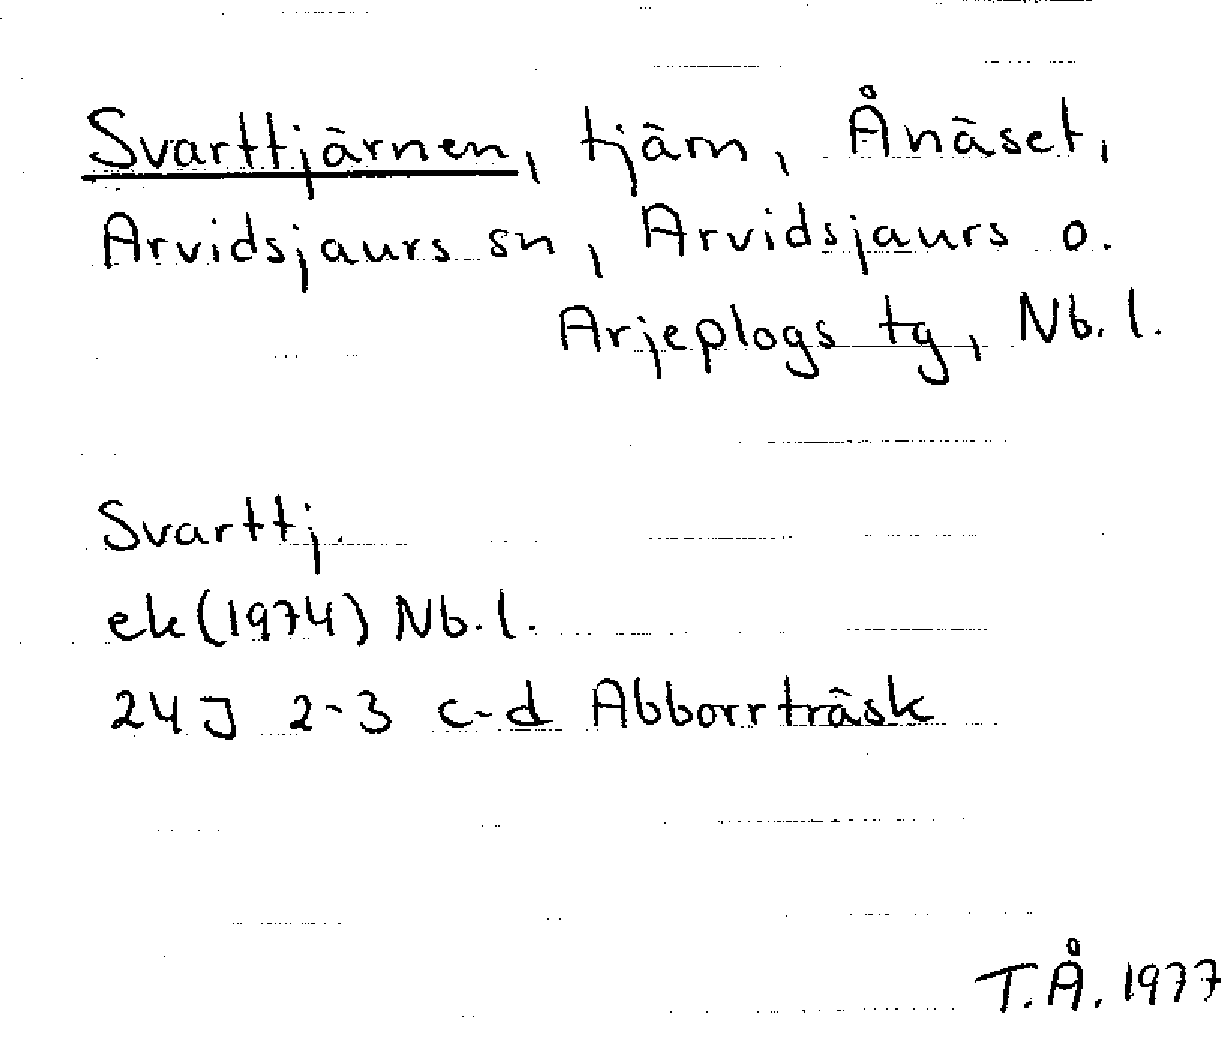 Svarttjärnen, tjärn, Ånäset,
Arvidsjaurs sn, Arvidsjaurs o.
Arjeplogs tg, Nb. l.
Svarttj.
ek (1974) Nb. l.
24J 2-3 c-d Abborrträsk
T.Å. 1977